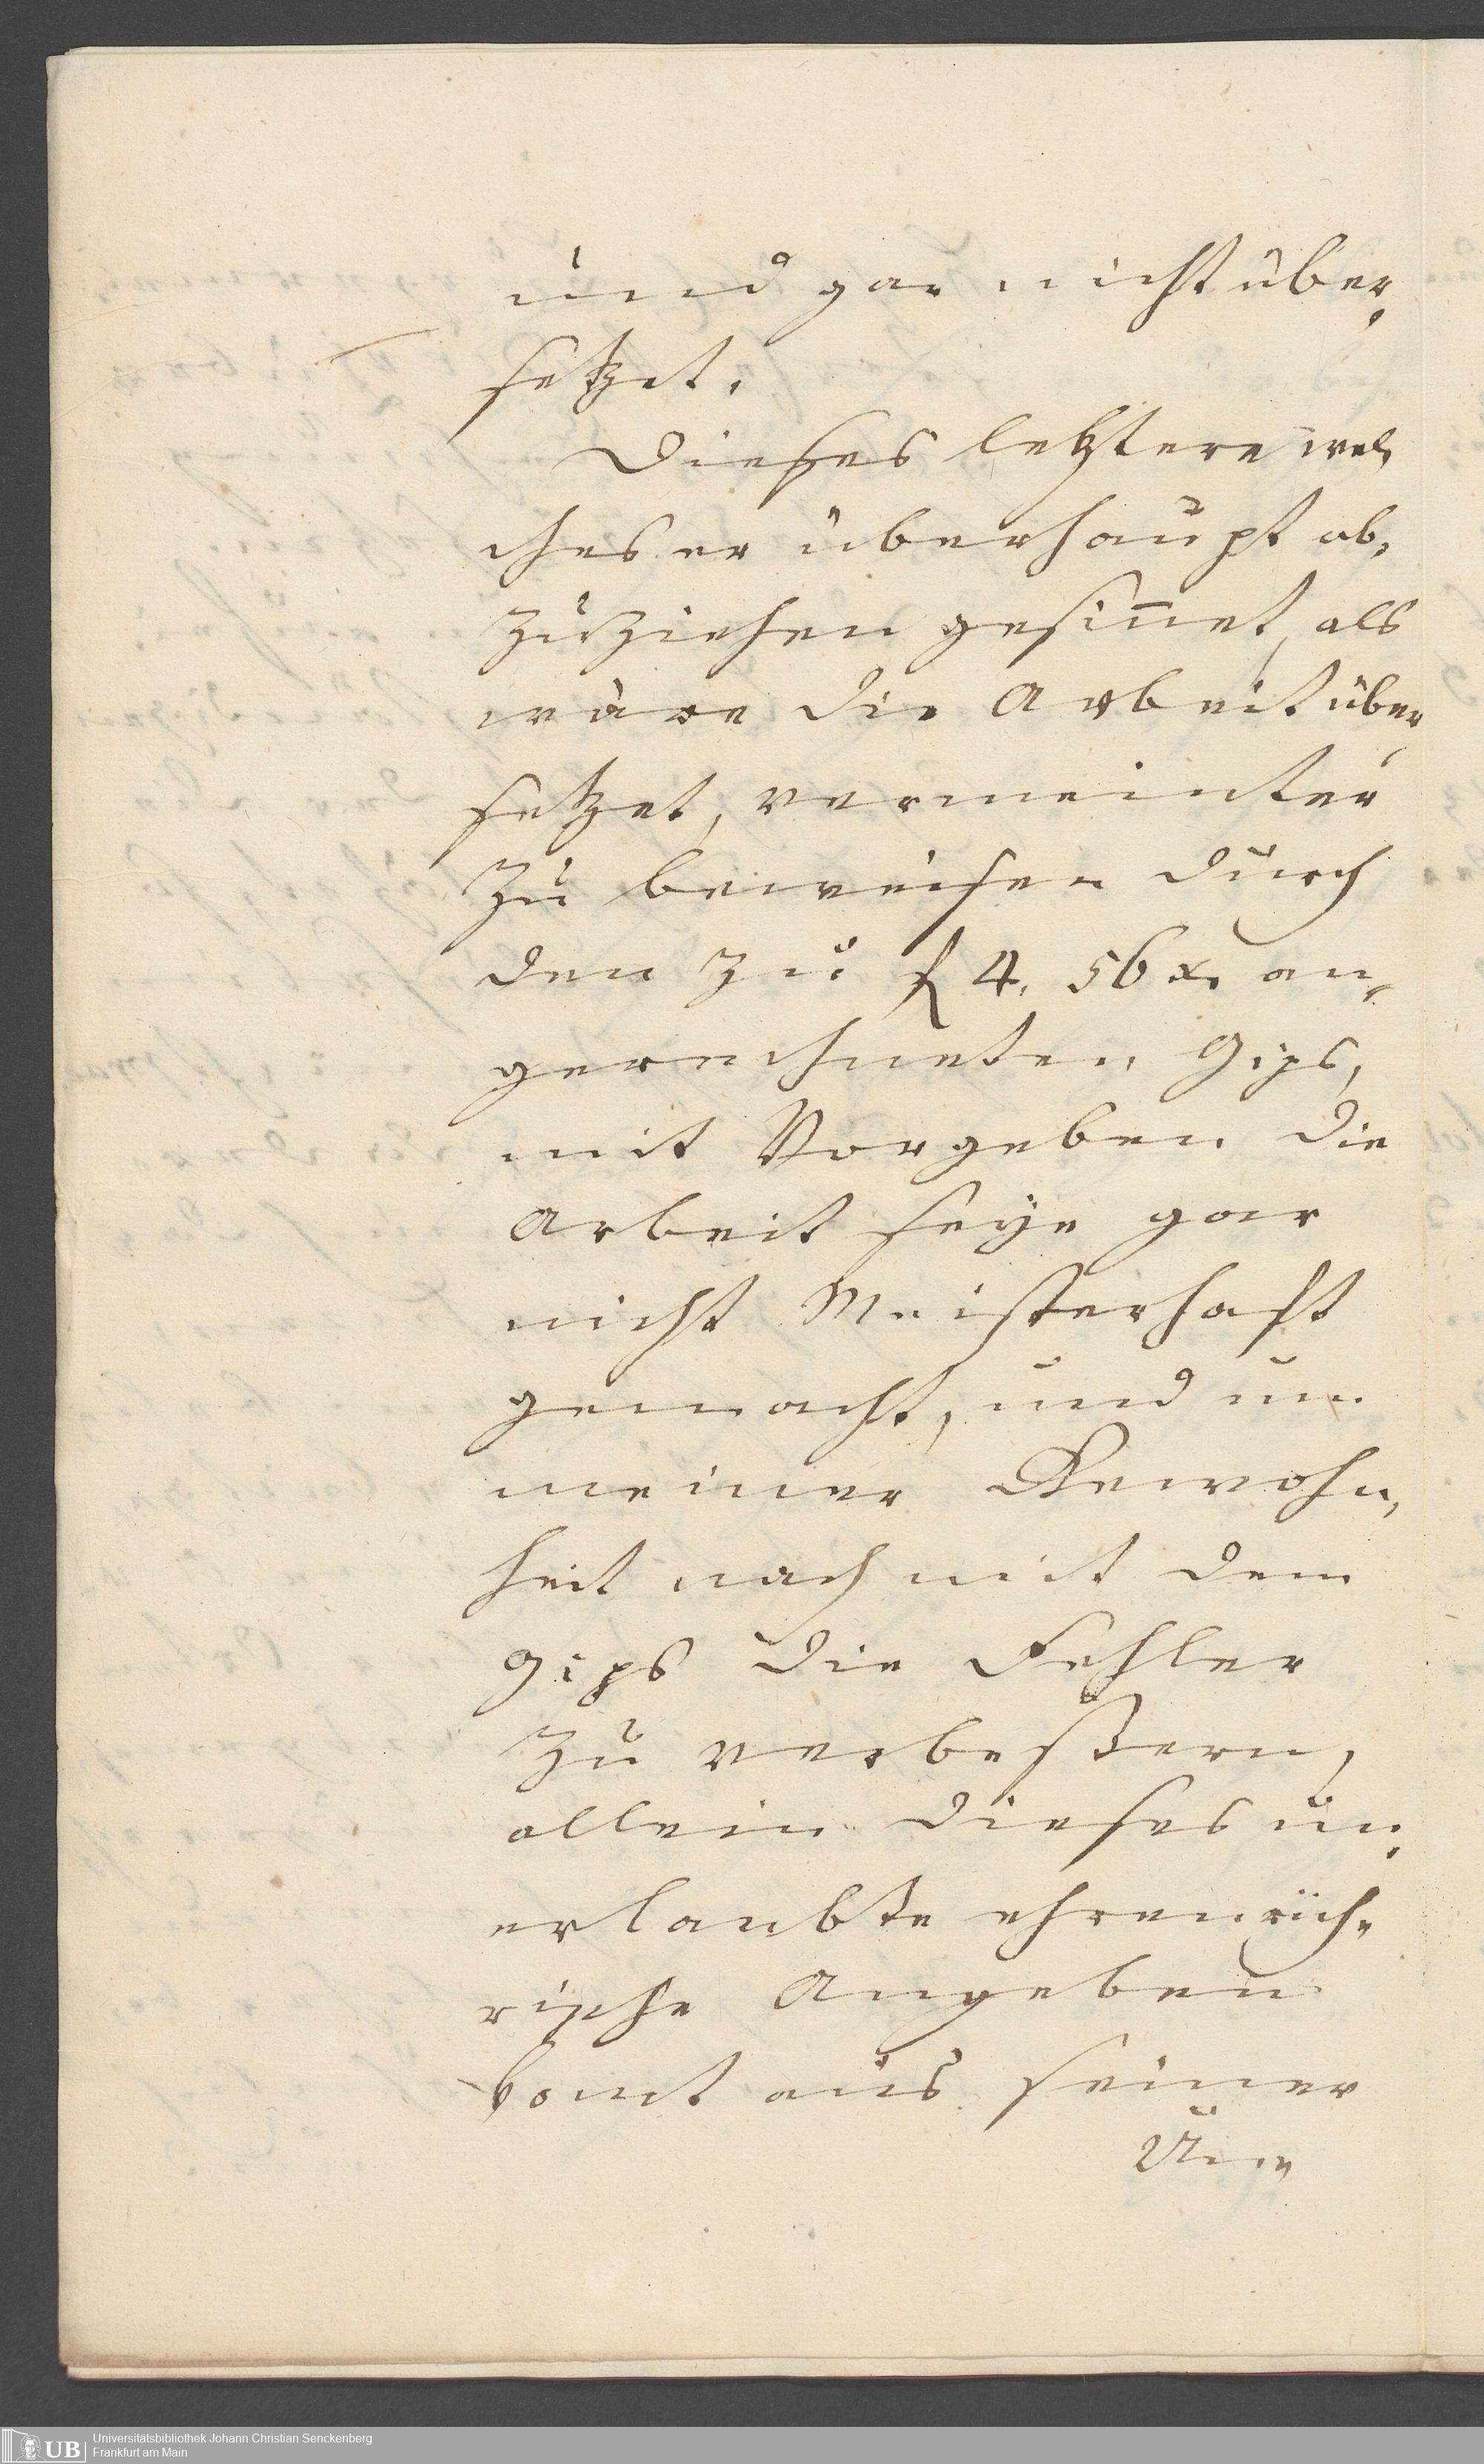 und gar nicht über,
setzet.
Dieses letztere wel,
ches er überhaupt ab,
zuziehen gesinnet, als
wäre die Arbeit über
setzet, vermeinter
zu beweisen durch
den zu f 4. 56 x. an,
gerechneten Gips,
mit Vorgeben die
Arbeit seÿe gar
nicht Meisterhaft
gemacht, und um
meiner Gewohn,
heit nach mit dem
Gips die Fehler
zu verbeßern,
allein dieses un,
erlaubte ehrenrüh,
rische Angeben
komt aus seiner
Un,
UB
Universitätsbibliothek Johann Christian Senckenberg
Frankfurt am Main